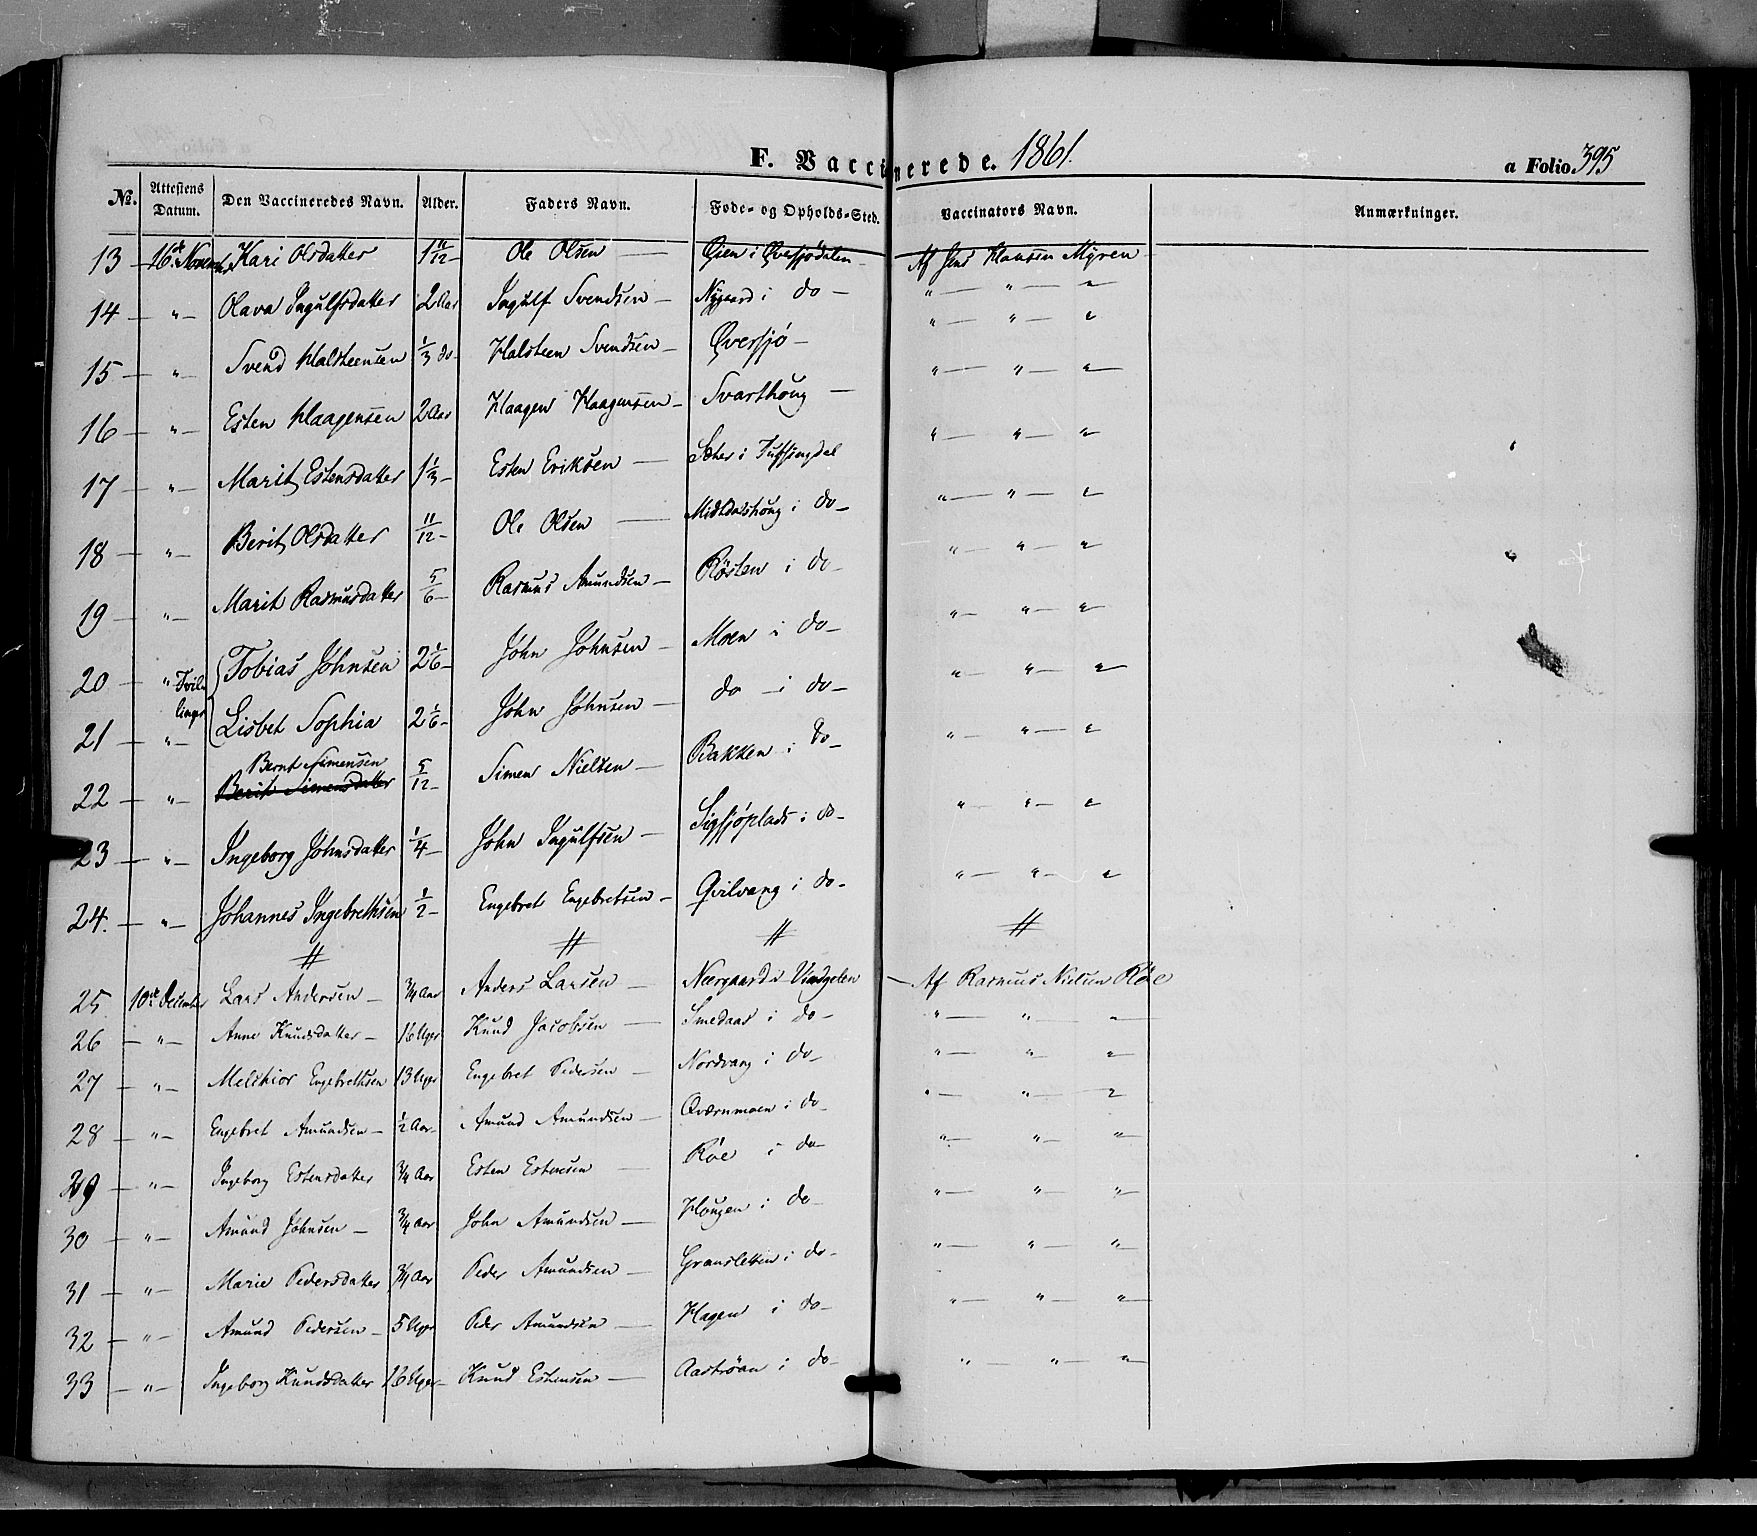 F. Vaccinerede. 1861.
a Folio. 395
No. Attestens Datum. Den Vaccineredes Navn. Alder. Faders Navn. Føde- og Opholds-Sted. Vaccinators Navn. Anmærkninger.
13 — 16de Novembr Kari Olsdatter 1 11/12 — Ole Olsen — Øien i Øversjødalen — Af Jens Hansen Myren
14 — " — Olava Ingulfsdatter 2 Aar Ingulf Svendsen — Nygaard i do — " — " — "
15 — " — Svend Halsteensen 1/3 do — Halsteen Svendsen — Øversjø — " — " — "
16 — " — Esten Haagensen 2 Aar Haagen Haagensen — Svarthoug — " — " — "
17 — " — Marit Estensdatter 1 1/3 — Esten Eriksen — Sæter i Tufsingdal " — " — "
18 — " — Berit Olsdatter 11/12 — Ole Olsen — Middalshoug i do — " — " — "
19 — " — Marit Rasmusdatter 5/6 — Rasmus Amundsen — Røsten i do — " — " — "
20 — " Tvil- Tobias Johnsen 2 1/6 — John Johnsen — Moen i do — " — " — "
linger
21 — " — Lisbet Sophia 2 1/6 — John Johnsen — do — i do — " — " — "
Bernt Simensen
22 — " — Berit Simensdatter 5/12 — Simen Nielsen — Bakken i do — " — " — "
23 — " — Ingeborg Johnsdatter 1/4 — John Ingulfsen — Sigsjøplads i do — " — " — "
24. — " — Johannes Ingebrethsen 1/2 — Engebret Engebretsen — Qvilvang i do — " — " — "
25 10de December Lars Andersen — 3/4 Aar Anders Larsen — Neergaard i Vingelen — Af Rasmus Nielsen Røe
26 — " — Anne Knudsdatter — 16 Uger Knud Jacobsen — Smedaas i do — " — " — "
27 — " — Melchior Engebrethsen 13 Uger Engebret Pedersen — Nordvang i do — " — " — "
28 — " — Engebret Amundsen — 1/2 Aar — Amund Amundsen — Qværnmoen i do — " — " — "
29 — " — Ingeborg Estensdatter 3/4 Aar Esten Estensen — Røe i do — " — " — "
30 — " — Amund Johnsen — 3/4 Aar John Amundsen — Hougen i do — " — " — "
31 — " — Marie Pedersdatter 3/4 Aar Peder Amundsen — Gransletten i do — " — " — "
32 — " — Amund Pedersen — 5 Uger Peder Amundsen — Hagen i do — " — " — "
33 — " — Ingeborg Knudsdatter 16 Uger — Knud Estensen — Aastrøan i do — " — " — "